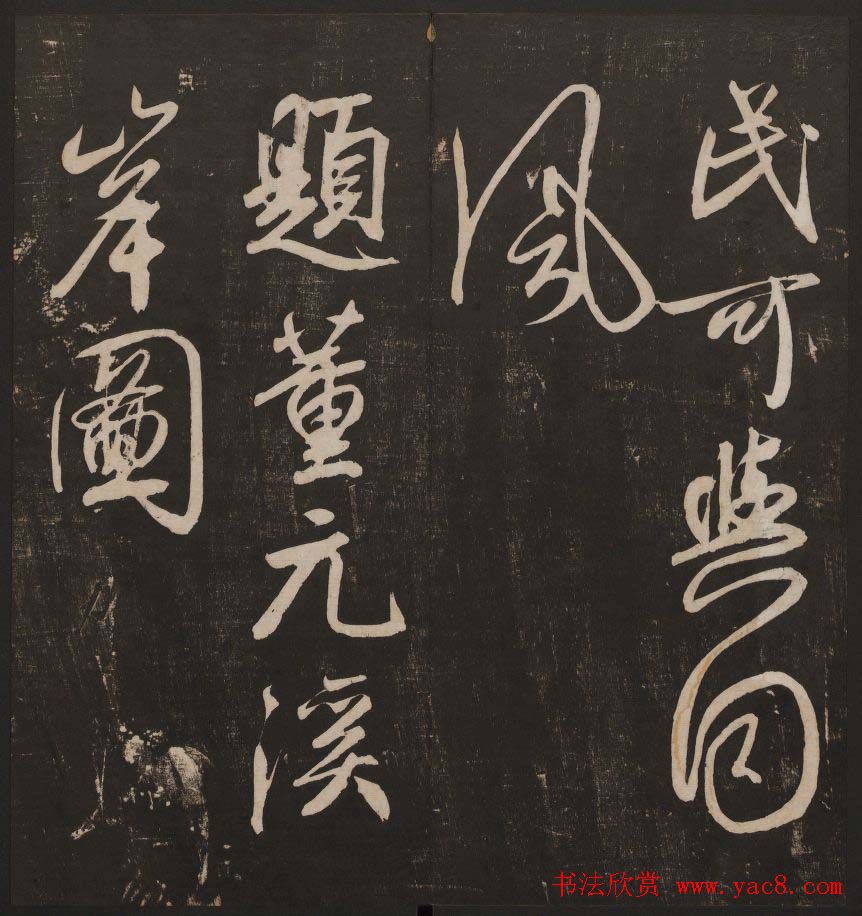 民可與同
風
題董元溪
岸圖
书法欣赏 www.yac8.com